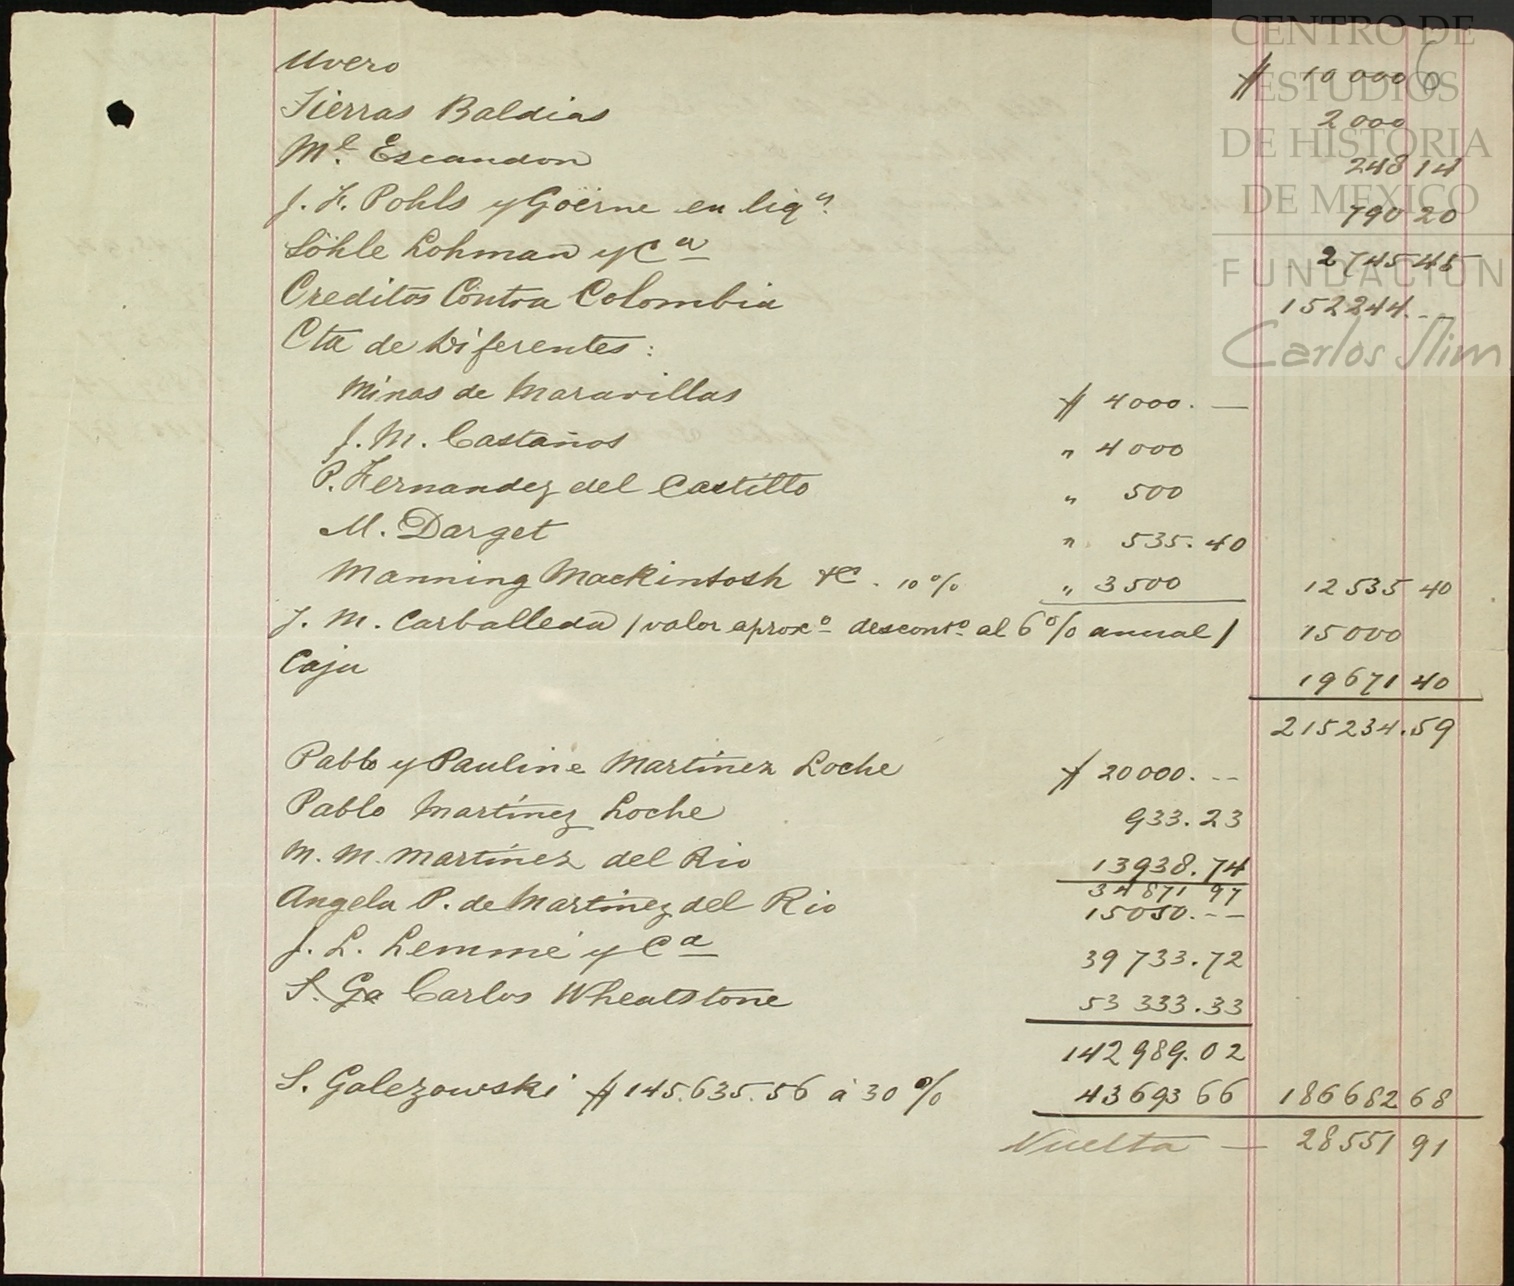 CENTRO DE
ESTUDIOS
DE HISTORIA
DE MEXICO
FUNDACION
Carlos Slim
6
Uvero $ 10000
Tierras Baldias 2000
Ml. Escandon 248 14
J. F. Pohls y Goërne en liqn. 790 20
Söhle Lohman y Ca 2745 45
Creditos Contra Colombia 152244. --
Cta de Diferentes:
Minas de Maravillas $ 4000. —
J. M. Castaños " 4000
P. Fernandez del Castillo " 500
M. Darget " 535.40
Manning Mackintosh &C. 10% " 3500 12535 40
J. M. Carballeda / valor aproxo desconto al 6% anual / 15000
Caja 19671 40
215234.59
Pablo y Pauline Martínez Loche $ 20000. --
Pablo Martínez Loche 933.23
M. M. Martínez del Rio 13938.74
34871 97
Angela P. de Martínez del Rio 15050. --
J. L. Lemmé y Ca 39733.72
S. Ga Carlos Wheatstone 53333.33
142989.02
S. Galezowski $ 145.635.56 á 30% 43693 66 186682 68
Vuelta — 28551 91